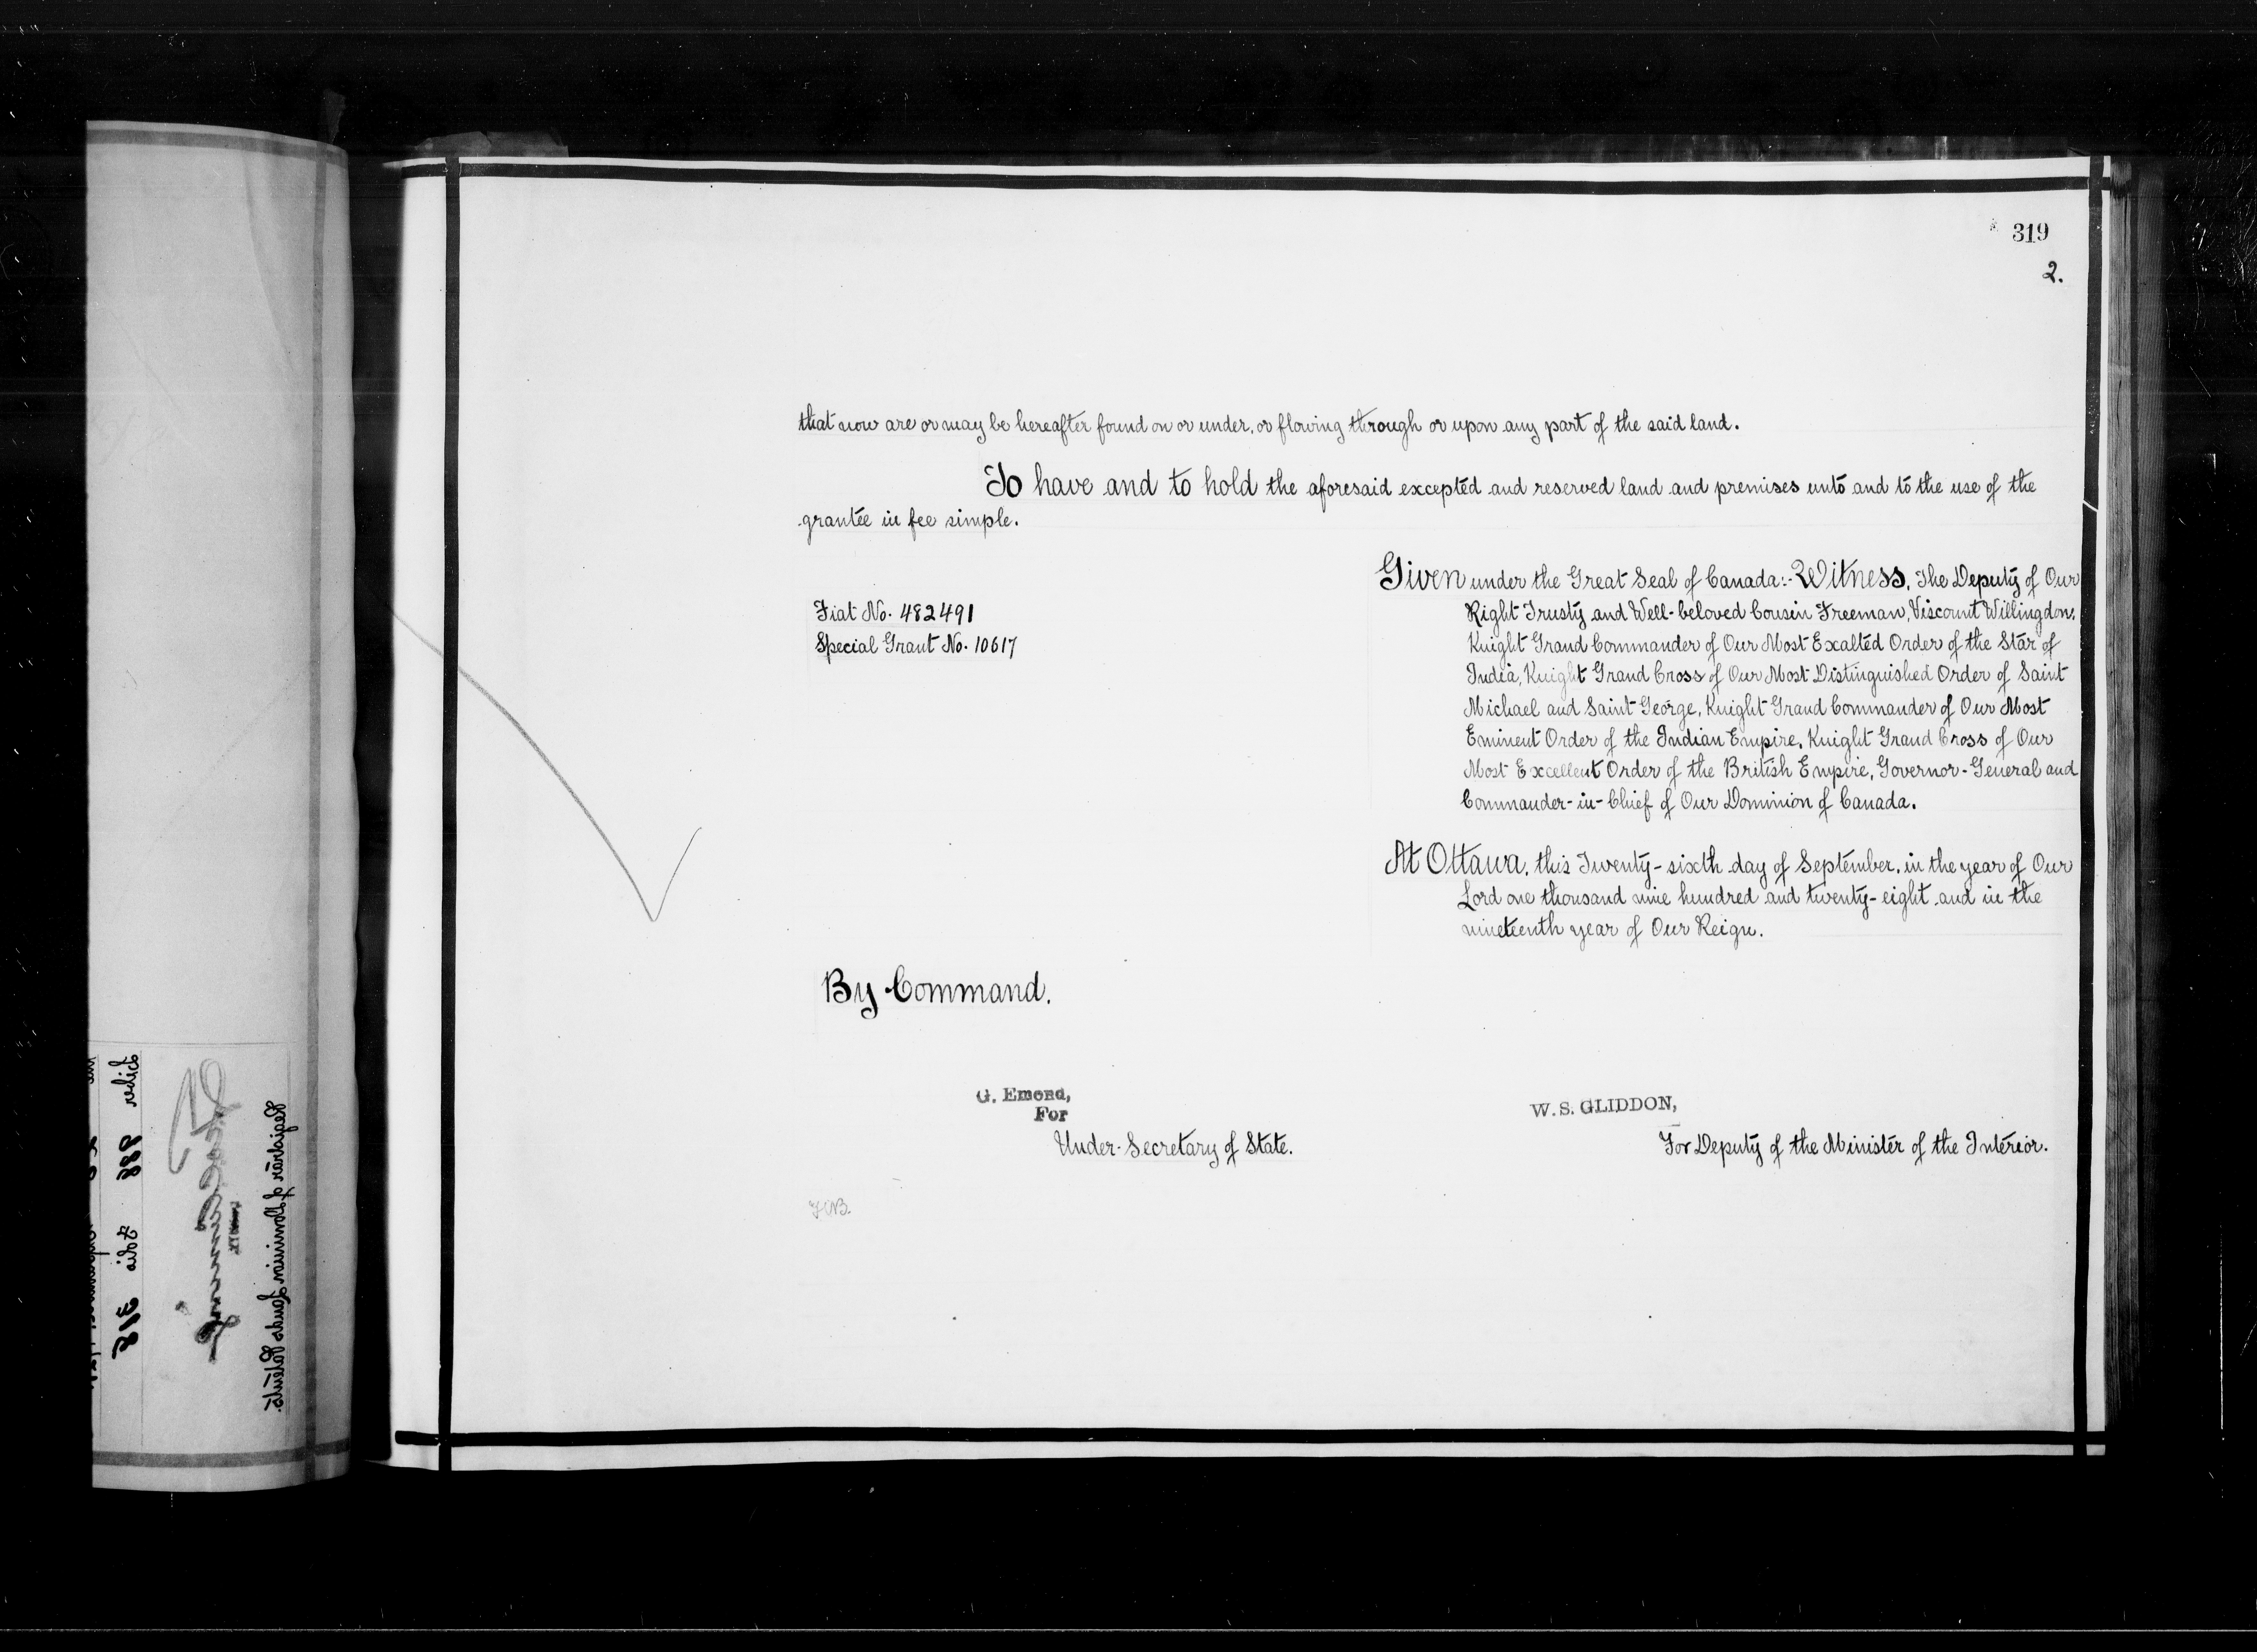 319
2.
that now are or may be hereafter found on or under, or flowing through or upon any part of the said land.
To have and to hold the aforesaid excepted and reserved land and premises unto and to the use of the
grantee in fee simple.
Given under the Great Seal of Canada:- Witness, The Deputy of Our
Right Trusty and Well-beloved Cousin Freeman, Viscount Willingdon,
Knight Grand Commander of Our Most Exalted Order of the Star of
India, Knight Grand Cross of Our Most Distinguished Order of Saint
Michael and Saint George, Knight Grand Commander of Our Most
Eminent Order of the Indian Empire, Knight Grand Cross of Our
Most Excellent Order of the British Empire, Governor-General and
Commander-in-Chief of Our Dominion of Canada.
Fiat No. 482491
Special Grant No. 10617
At Ottawa, this Twenty-sixth day of September, in the year of Our
Lord one thousand nine hundred and twenty-eight and in the
nineteenth year of Our Reign.
By Command.
G. Emond,
For
Under-Secretary of State.
W. S. GLIDDON,
For Deputy of the Minister of the Interior.
Registrar of Dominion Lands Patents.